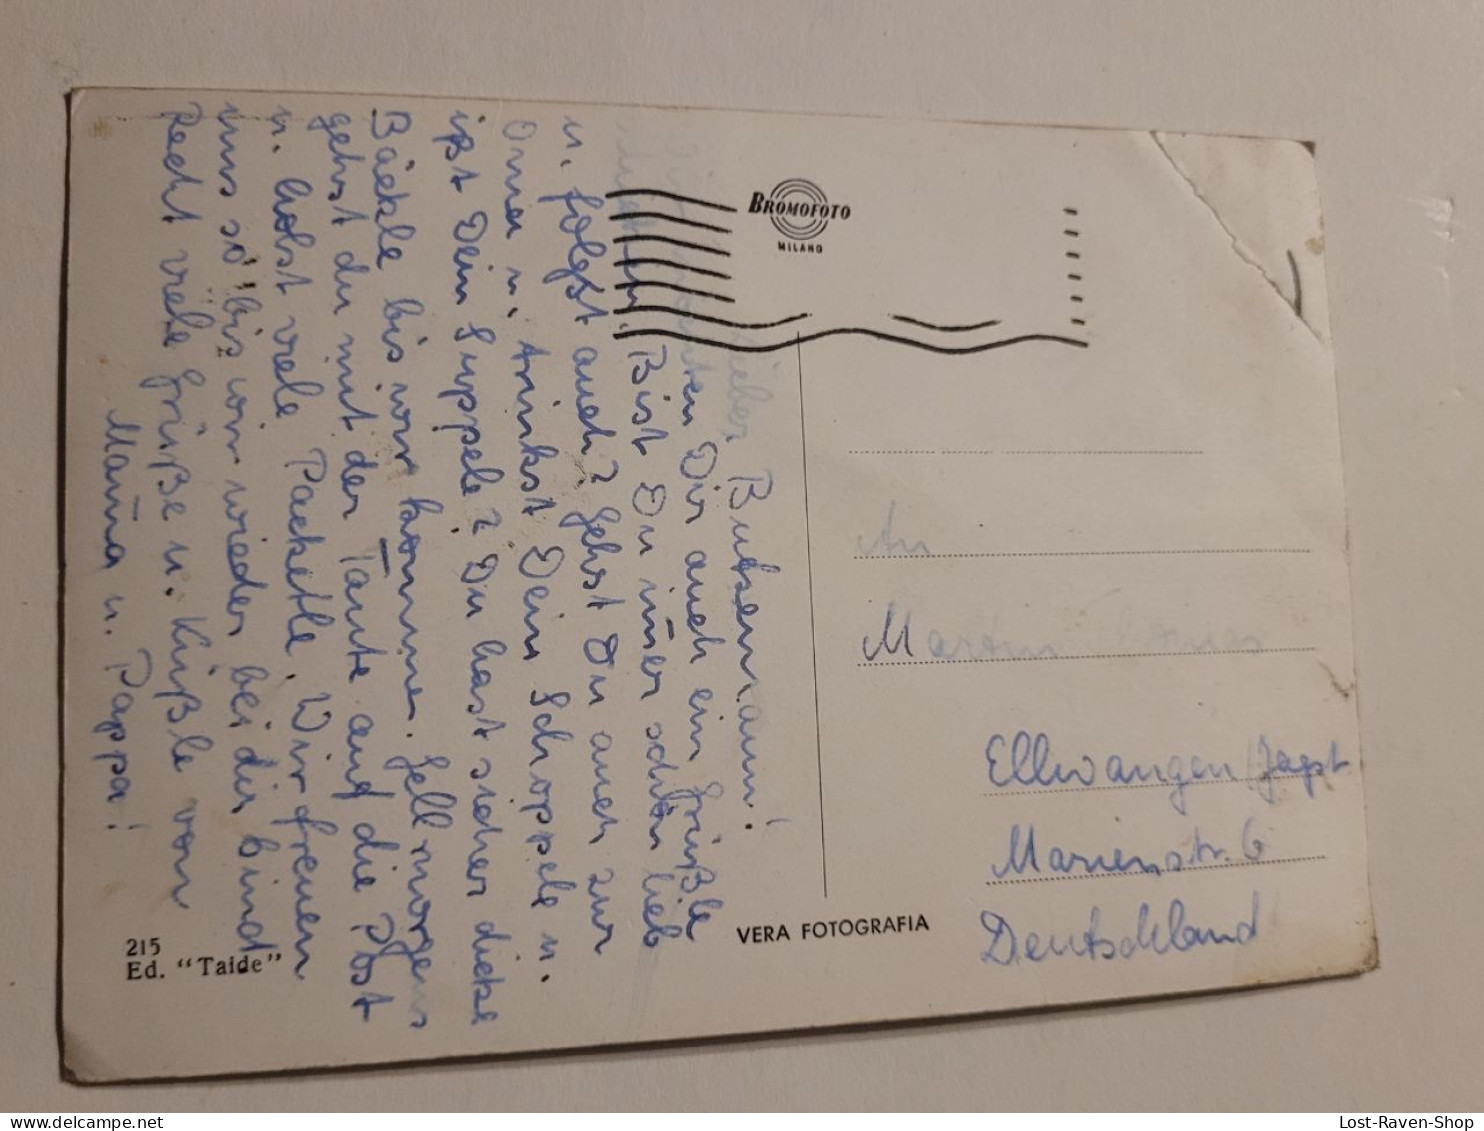 Lieber Butsemann!
Dir auch ein Grüßle
Bist Du im̄er schön lieb
u. folgst auch? Gehst Du auch zur
Omа u. trinkst Dein Schoppele u.
ißt Dein Suppele? Du hast sicher dicke
Bäckle bis wir kommen. Gell morgens
gehst du mit der Tante auf die Post
u. holst viele Packetle. Wir freuen
uns so bis wir wieder bei dir sind
Recht viele Grüße u. Küßle von
Mam̄a u. Pappa!
BROMOFOTO
MILANO
An
Martin
Ellwangen/Jagst
Marienstr. 6
Deutschland
VERA FOTOGRAFIA
215
Ed. "Taide"
Lost-Raven-Shop